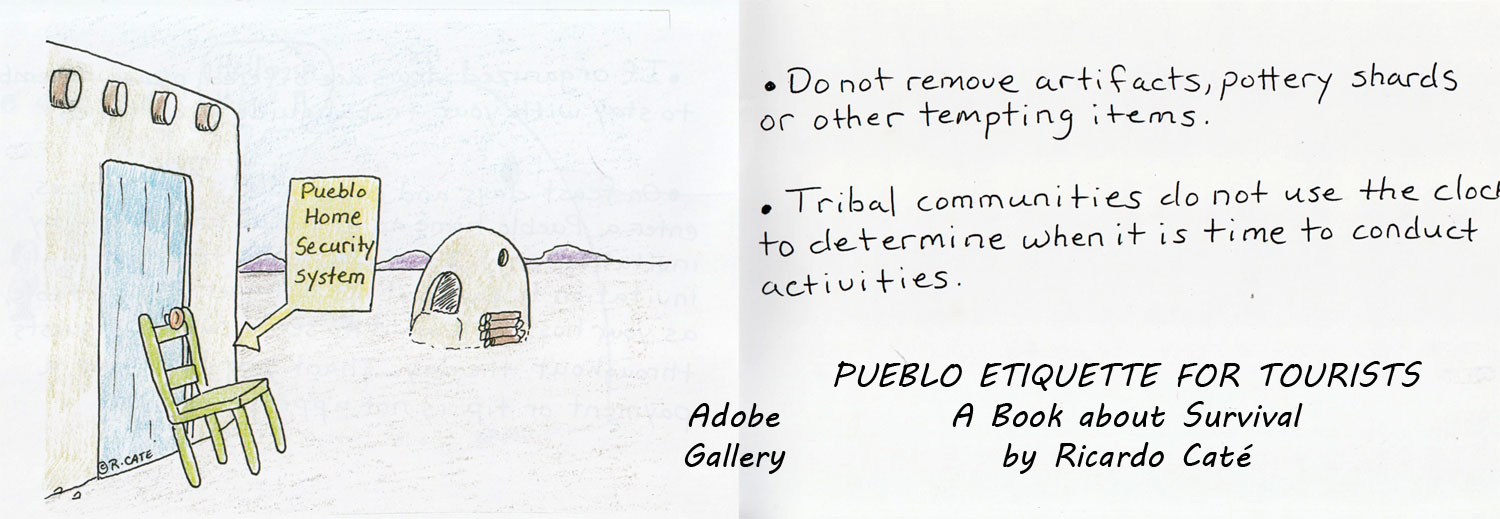 Pueblo
Home
Security
System
©R.CATE
• Do not remove artifacts, pottery shards
or other tempting items.
• Tribal communities do not use the cloc
to determine when it is time to conduct
activities.
PUEBLO ETIQUETTE FOR TOURISTS
A Book about Survival
by Ricardo Caté
Adobe
Gallery